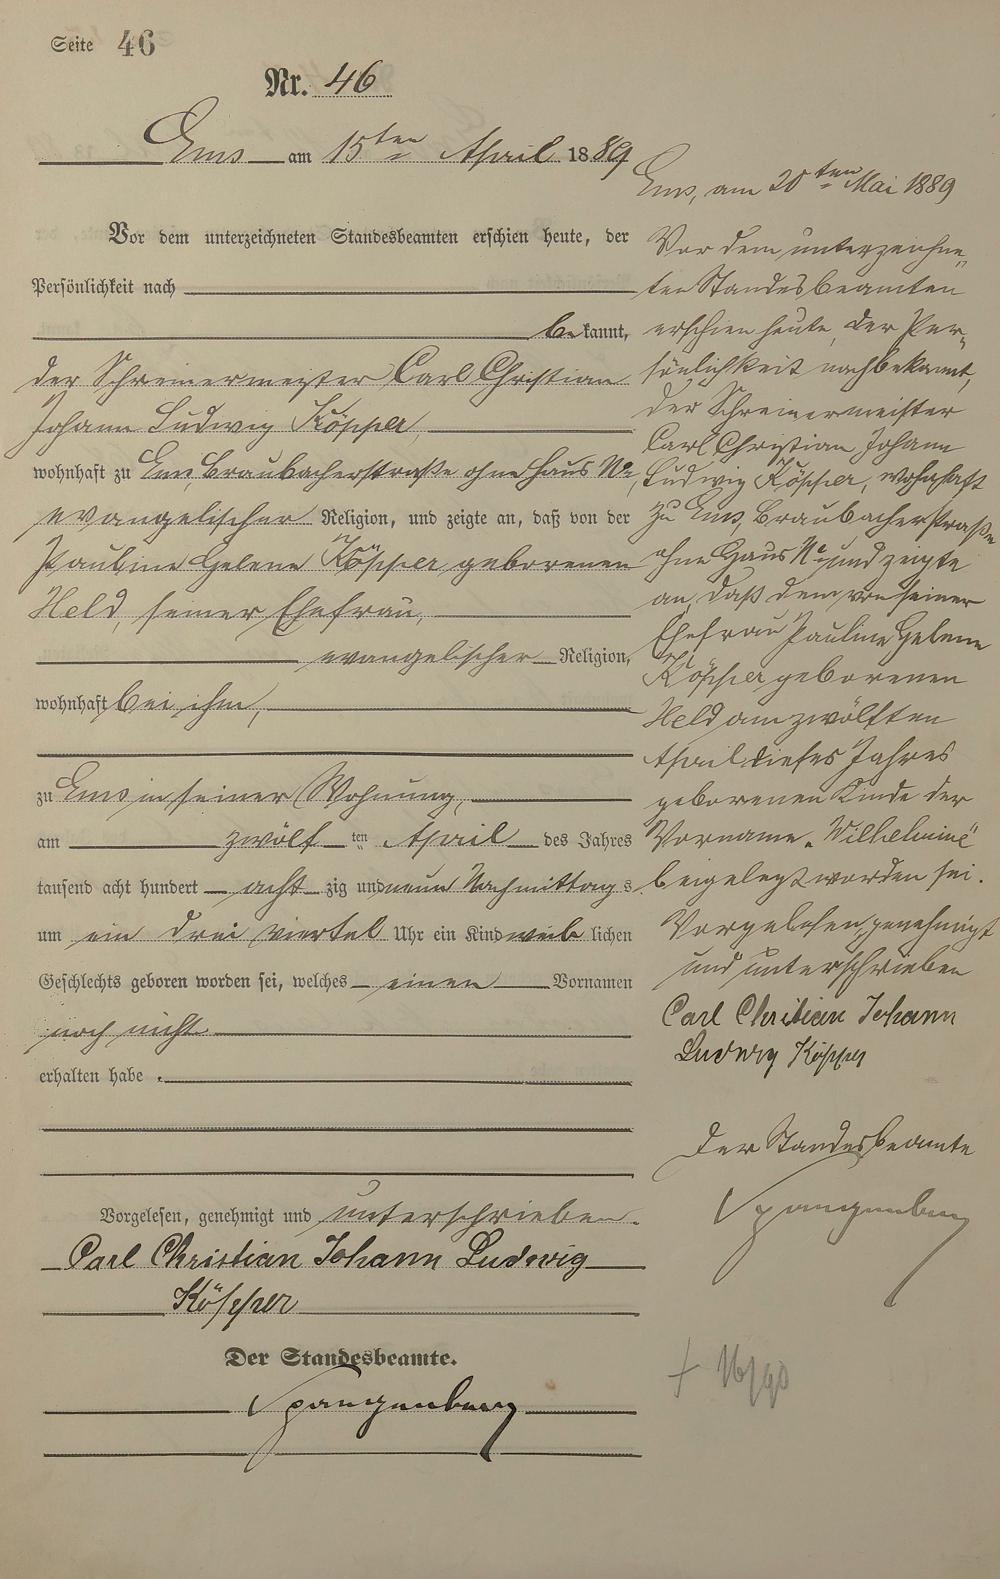 Seite 46
Nr. 46
Ems am 15ten April 1889
Vor dem unterzeichneten Standesbeamten erschien heute, der
Persönlichkeit nach
bekannt,
der Schreinermeister Carl Christian
Johann Ludwig Köpper,
wohnhaft zu Ems, Braubacherstraße ohne Haus No,
evangelischer Religion, und zeigte an, daß von der
Pauline Helene Köpper geborenen
Held, seiner Ehefrau,
evangelischer Religion,
wohnhaft bei ihm,
zu Ems in seiner Wohnung,
am zwölf ten April des Jahres
tausend acht hundert acht zig und neun Nachmittag s
um ein drei viertel Uhr ein Kind weib lichen
Geschlechts geboren worden sei, welches einen Vornamen
noch nicht
erhalten habe .
Vorgelesen, genehmigt und unterschrieben.
Carl Christian Johann Ludwig
Köpper
Der Standesbeamte.
Spangenberg
Ems, am 20ten Mai 1889
Vor dem unterzeichne„
ten Standesbeamten
erschien heute, der Per„
sönlichkeit nach bekannt,
der Schreinermeister
Carl Christian Johann
Ludwig Köpper, wohnhaft
zu Ems, Braubacherstraße
ohne Haus No und zeigte
an, daß dem von seiner
Ehefrau Pauline Helene
Köpper geborenen
Held am zwölften
April dieses Jahres
geborenen Kinde der
Vorname „Wilhelmine"
beigelegt worden sei.
Vorgelesen, genehmigt
und unterschrieben
Carl Christian Johann
Ludwig Köpper
Der Standesbeamte
Spangenberg
† 16/90